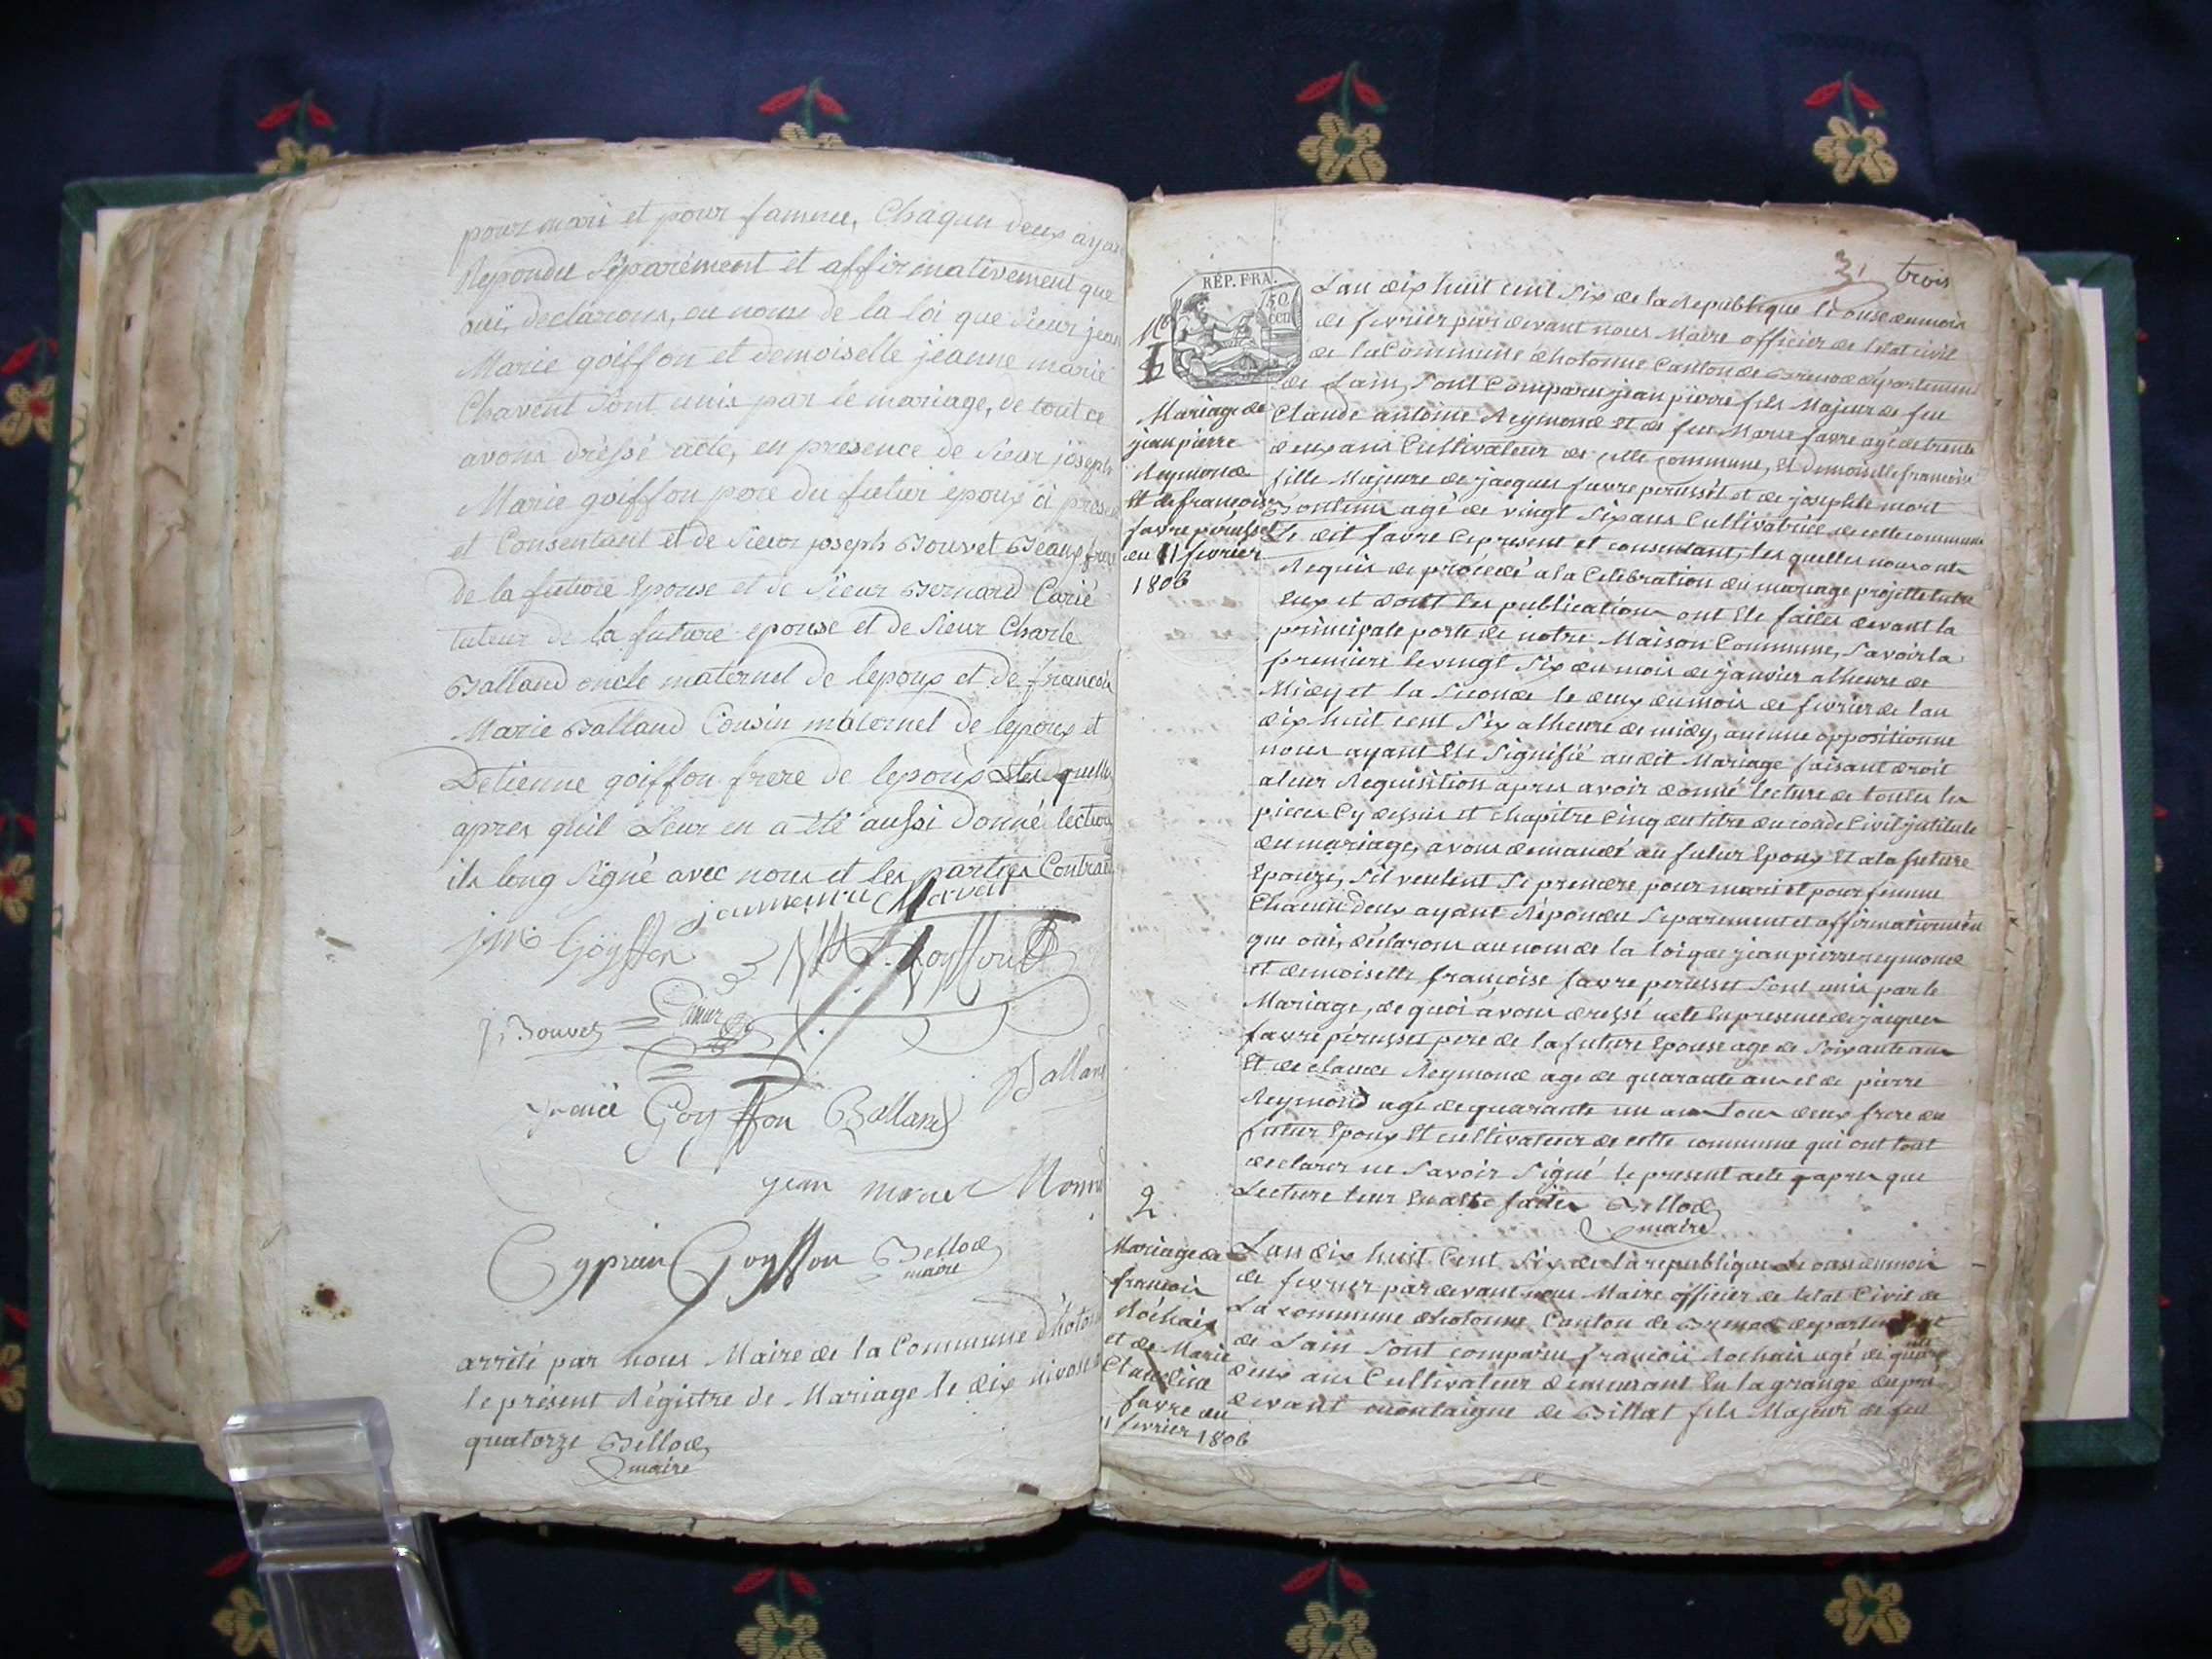 pour mari et pour famme, Chaqun deux ayan
Repondu Séparément et affirmativement que
oui, declarons, au nom de la loi que Sieur jean
Marie goiffon et demoiselle jeanne marie
Chavent Sont unis par le mariage, de tout ce
avons dréssé acte, en presence de Sieur joseph
Marie goiffon pere du futur epoux à prese
et Consentant et de Sieur joseph Bouvet Beaufrere
de la future Epouse et de Sieur Bernard Carié
tuteur de la future epouse et de Sieur Charle
Balland oncle maternel de lepoux et de francois
Marie Balland Cousin maternel de lepoux et
Detienne goiffon frere de lepoux Les quelle
apres quil Leur en a été aussi donné lecture
ils long Signé avec nous et les parties Contrac
jeanne marie Chavent
jm Goÿffon
J. Bouvet
Goyffon Balland
Balland
jean
Cyprien Goyffon Bellod
maire
arrêté par nous Maire de la Commune dhoton
le présent Régistre de Mariage le dix nivose
quatorze Bellod
maire
3 trois
RÉP. FRA.
50
cen
No
1
Mariage de
jean pierre
Reymond
Et de francoise
favre perusset
du 11 fevrier
1806
Lan dix huit cent Six de la Republique le onse du mois
de fevrier par devant nous Maire officier de letat civil
de la Commune dhotonne Canton de Brenod département
de Lain, Sont Comparu jean pierre fils Majeur de feu
Claude antoine Reymond et de feu Marie favre agé de trente
deux ans Cultivateur de cette commune, Et demoiselle francoise
fille Majeure de jacques favre perusset et de josephte mort
agé de vingt Six ans Cultivatrice de cette commune
Le dit favre Cy present et consentant, les quelles nous ont
Requis de procédé a la Celebration du mariage projetté entre
Eux et dont les publications ont Ete faites devant la
principale porte de notre Maison Commune, Savoir la
premiere le vingt Six du mois de janvier a lheure de
Midy et la Seconde le deux du mois de fevrier de lan
dix huit cent Six a lheure de midy, aucune oppositionne
nous ayant Ete Signifié au dit Mariage faisant droit
a leur Requisition apres avoir donné lecture de toutes les
pieces Cy dessus et chapitre Cinq du titre du code Civil jntitule
du mariage, avons demandé au futur Epoux Et a la future
Epouze, Sil veulent Se prendre pour mari et pour femme
Chacun deux ayant Répondu Séparement et affirmativemen
que oui, déclarons au nom de la loi que jean pierre reymond
et demoiselle françoise favre perusset Sont unis par le
Mariage, de quoi avons dressé acte En presence de jacques
favre pérusset pere de la future Epouse age de Soixante ans
Et de claude Reymond age de quarante ans et de pierre
Reymond agé de quarante un ans tous deux frere du
futur Epoux Et cultivateur de cette commune qui ont tout
declarer ne Savoir Signé le present acte apres que
Lecture leur En a été faites Bellod
maire
2
Mariage de
francois
Rochaix
et de Marie
Claudine
favre du
11 fevrier 1806
Lan dix huit Cent Six de la republique Le onse du mois
de fevrier par devant nous Maire officier de letat Civil de
La commune dhotonne Canton de Brenod departement
de Lain Sont comparu francois Rochaix agé de
deux ans Cultivateur demeurant En la grange du pré
devant montaigne de Billat fils Majeur de feu